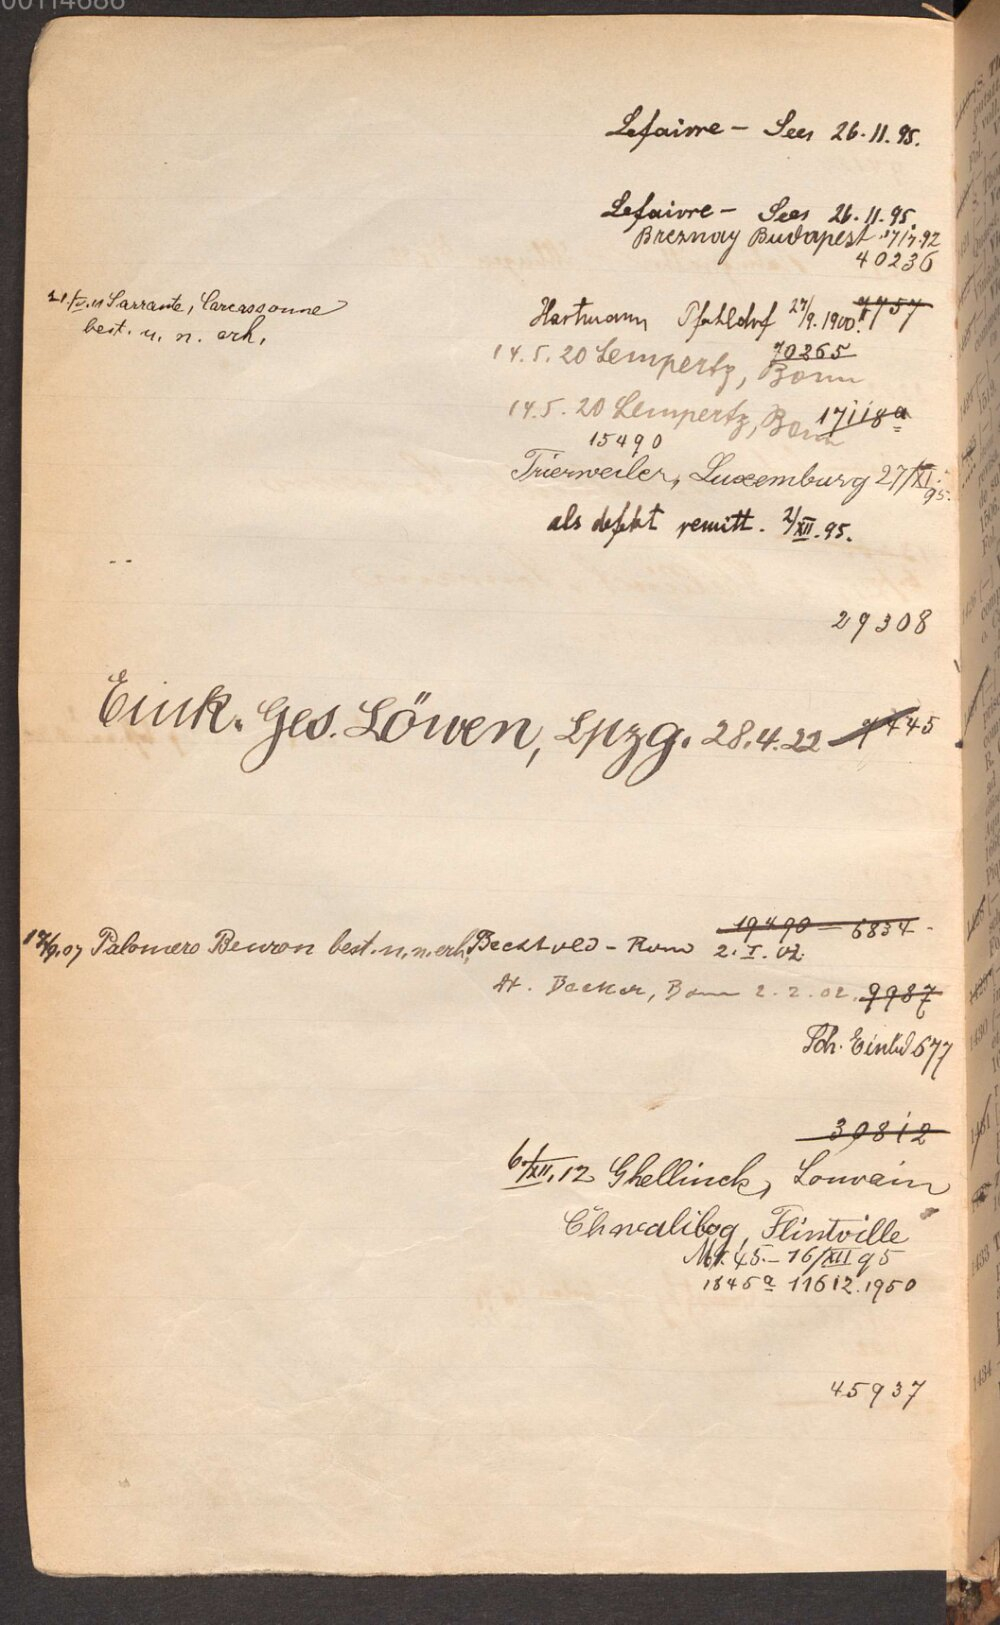 00114686
Lefaivre – Sees 26.11.95.
Lefaivre – Sees 26.11.95.
Breznay Budapest 17/7.92
40236
21./V.11 Sarrante, Carcassonne
best. u. n. erh.
Hartmann Pfahldorf 27/9.1900. 7757
14.5.20 Lempertz, Bonn 70265
14.5.20 Lempertz, Bonn 17118a
15490
Trierweiler, Luxemburg 27/XI.95.
als defekt remitt. 2/XII.95.
29308
Eink. Ges. Löwen, Lpzg. 28.4.22 7445
19490 – 6834
12/9.07 Palomero Beuron best. u. n. erh. Bechtold – Rom 2.I.02.
At. Becker, Bonn 2.2.02. 9987
Sch. Einbd 677
30812
6/XII.12 Ghellinck, Louvain
Chwalibog, Flintville
Mk. 45.– 16/XII 95
1845a 11612.1950
45937